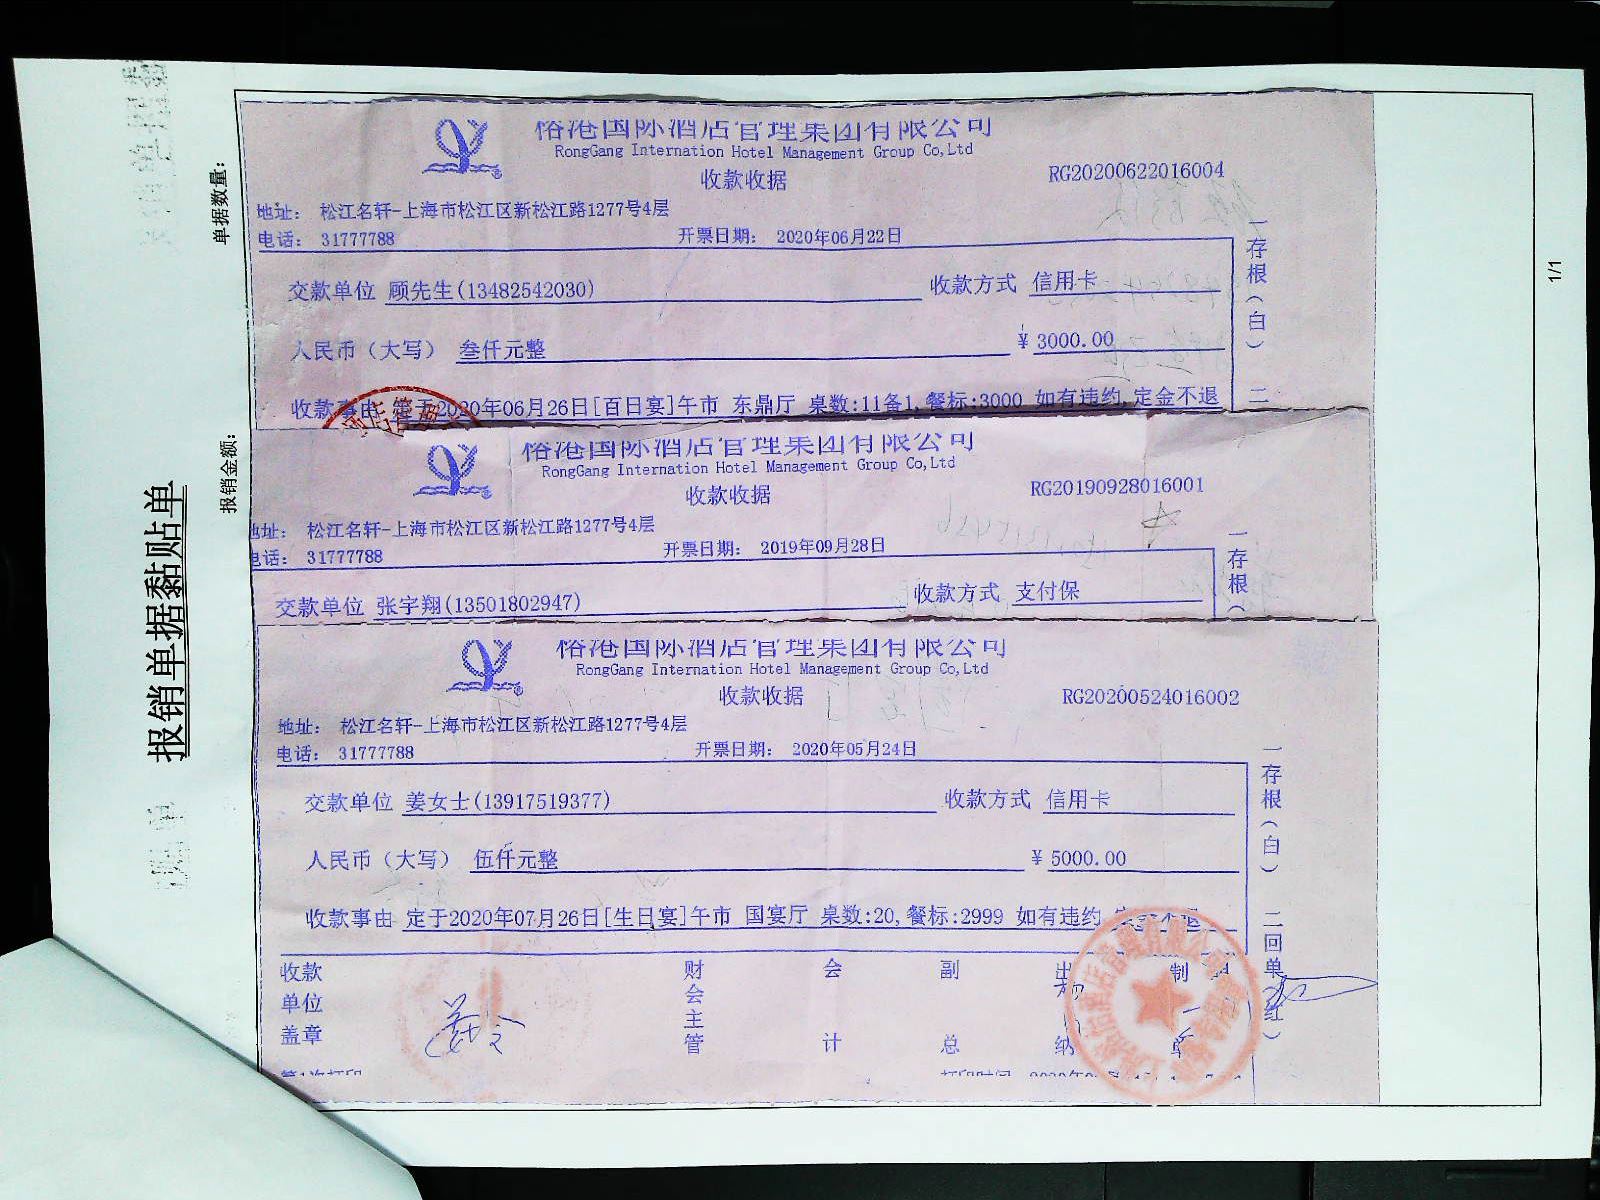 报销单据黏贴单
单据数量：
报销金额：
1/1
俗港国际酒店管理集团有限公司
RongGang Internation Hotel Management Group Co,Ltd
收款收据
RG20200622016004
地址： 松江名轩-上海市松江区新松江路1277号4层
电话： 31777788 开票日期： 2020年06月22日
交款单位 顾先生(13482542030) 收款方式 信用卡
人民币（大写） 叁仟元整 ¥ 3000.00
收款事由 定于2020年06月26日[百日宴]午市 东鼎厅 桌数:11备1,餐标:3000 如有违约,定金不退
一存根（白） 二
俗港国际酒店管理集团有限公司
RongGang Internation Hotel Management Group Co,Ltd
收款收据
RG20190928016001
地址： 松江名轩-上海市松江区新松江路1277号4层
电话： 31777788 开票日期： 2019年09月28日
交款单位 张宇翔(13501802947) 收款方式 支付保
一存根（
俗港国际酒店管理集团有限公司
RongGang Internation Hotel Management Group Co,Ltd
收款收据
RG20200524016002
地址： 松江名轩-上海市松江区新松江路1277号4层
电话： 31777788 开票日期： 2020年05月24日
交款单位 姜女士(13917519377) 收款方式 信用卡
人民币（大写） 伍仟元整 ¥ 5000.00
收款事由 定于2020年07月26日[生日宴]午市 国宴厅 桌数:20,餐标:2999 如有违约,定金不退
一存根（白） 二回单（红）
收款单位盖章 财会主管 会计 副总 出纳 制单